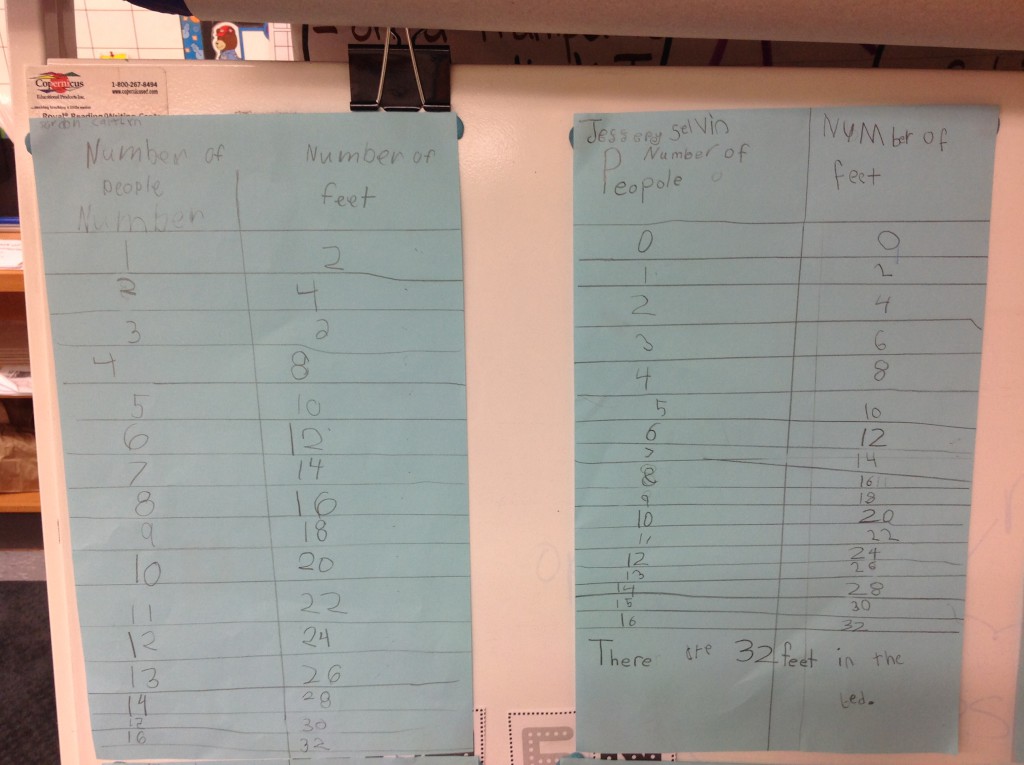 Copernicus
Educational Products Inc.
1-800-267-8494
www.copernicused.com
Royal® Reading/Writing Center
Number of
people
Number
Number of
feet
1 2
2 4
3 2
4 8
5 10
6 12
7 14
8 16
9 18
10 20
11 22
12 24
13 26
14 28
15 30
16 32
Selvin
Number of
Peopole
NUMber of
feet
0 0
1 2
2 4
3 6
4 8
5 10
6 12
7 14
8 16
9 18
10 20
11 22
12 24
13 26
14 28
15 30
16 32
There are 32 feet in the
bed.